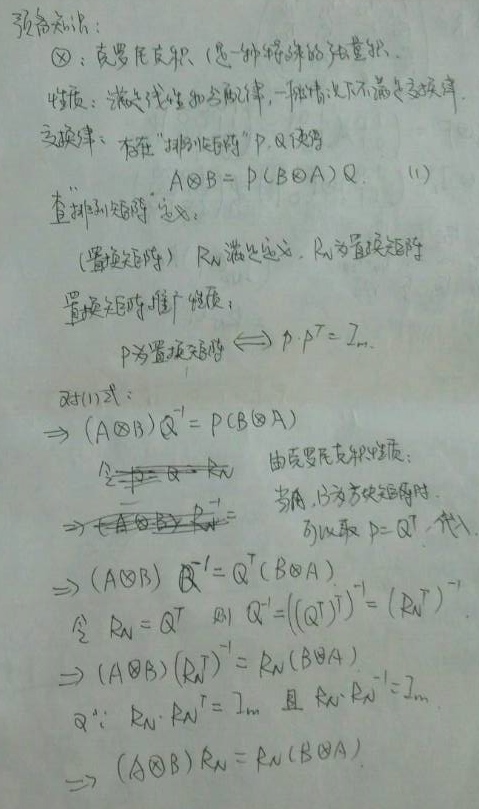 预备知识：
⊗：克罗尼克积（是一种特殊的张量积．
性质：满足线性和分配律，一般情况下不满足交换律．
交换律：存在“排列矩阵”P.Q使得
A⊗B = P(B⊗A)Q． (1)
查“排列矩阵”定义：
（置换矩阵） R_N满足定义．R_N为置换矩阵
置换矩阵推广性质：
P为置换矩阵 ⟺ P·P^T = I_m．
对(1)式：
⇒ (A⊗B)Q^{-1} = P(B⊗A)
令 P = Q = R_N
由克罗尼克积性质：
⇒ (A⊗B) R_N^{-1} =
当A，B为方块矩阵时．
可以取 P = Q^T．代入
⇒ (A⊗B) Q^{-1} = Q^T(B⊗A)
令 R_N = Q^T 则 Q^{-1} = ((Q^T)^T)^{-1} = (R_N^T)^{-1}
⇒ (A⊗B)(R_N^T)^{-1} = R_N(B⊗A)
∵ R_N·R_N^T = I_m 且 R_N·R_N^{-1} = I_m
⇒ (A⊗B)R_N = R_N(B⊗A)